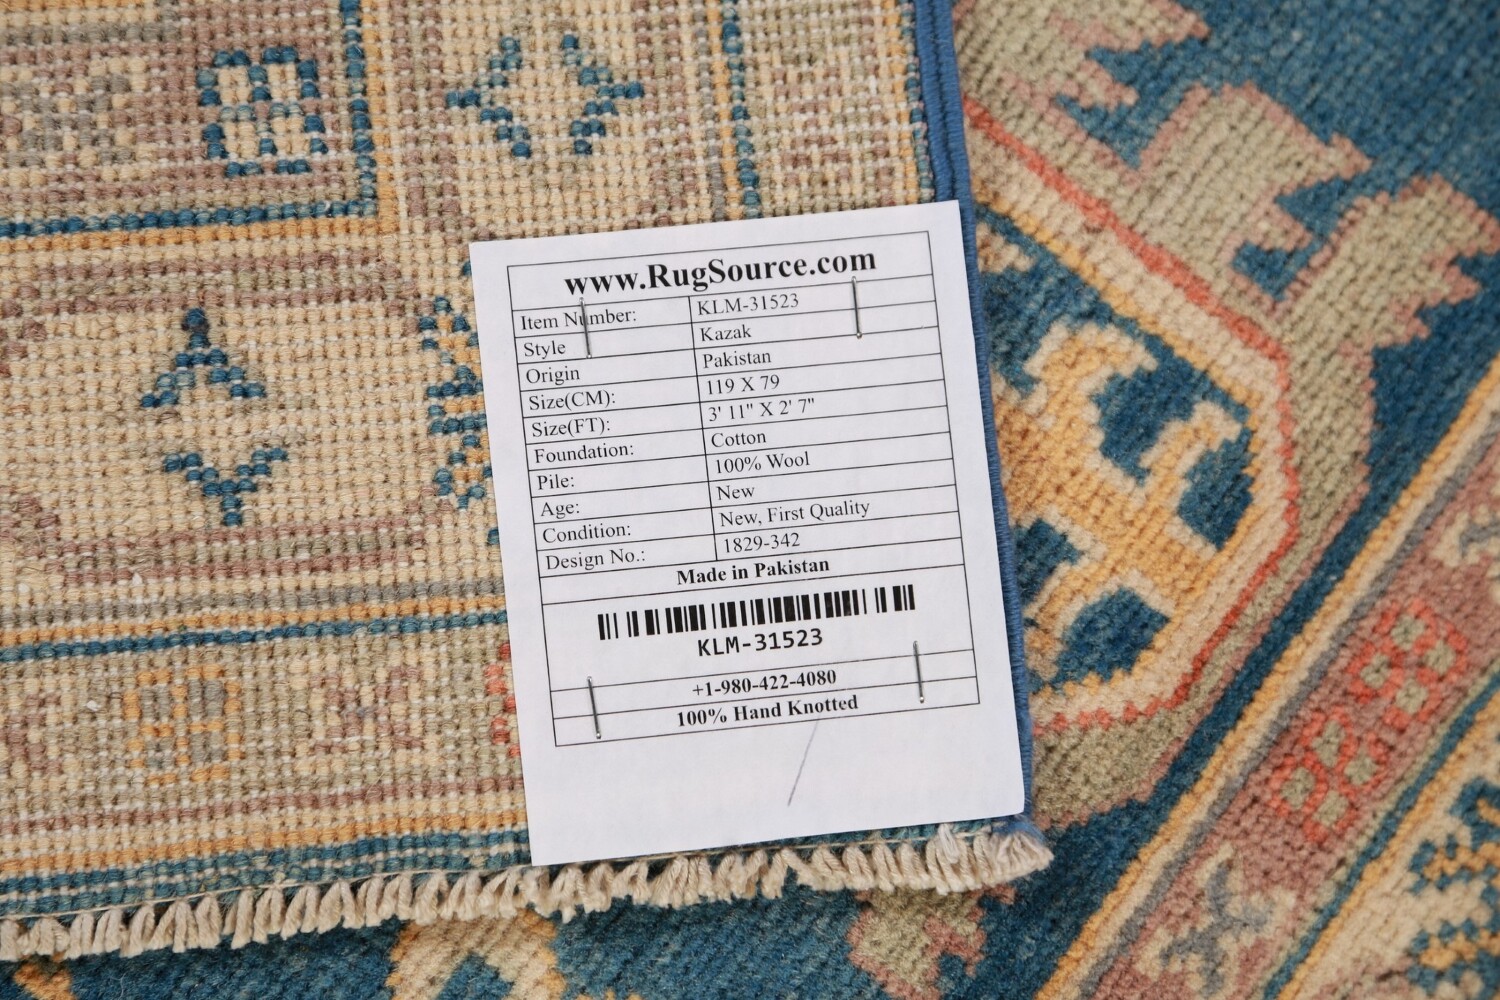 www.RugSource.com
Item Number: KLM-31523
Style Kazak
Origin Pakistan
Size(CM): 119 X 79
Size(FT): 3' 11" X 2' 7"
Foundation: Cotton
Pile: 100% Wool
Age: New
Condition: New, First Quality
Design No.: 1829-342
Made in Pakistan
KLM-31523
+1-980-422-4080
100% Hand Knotted